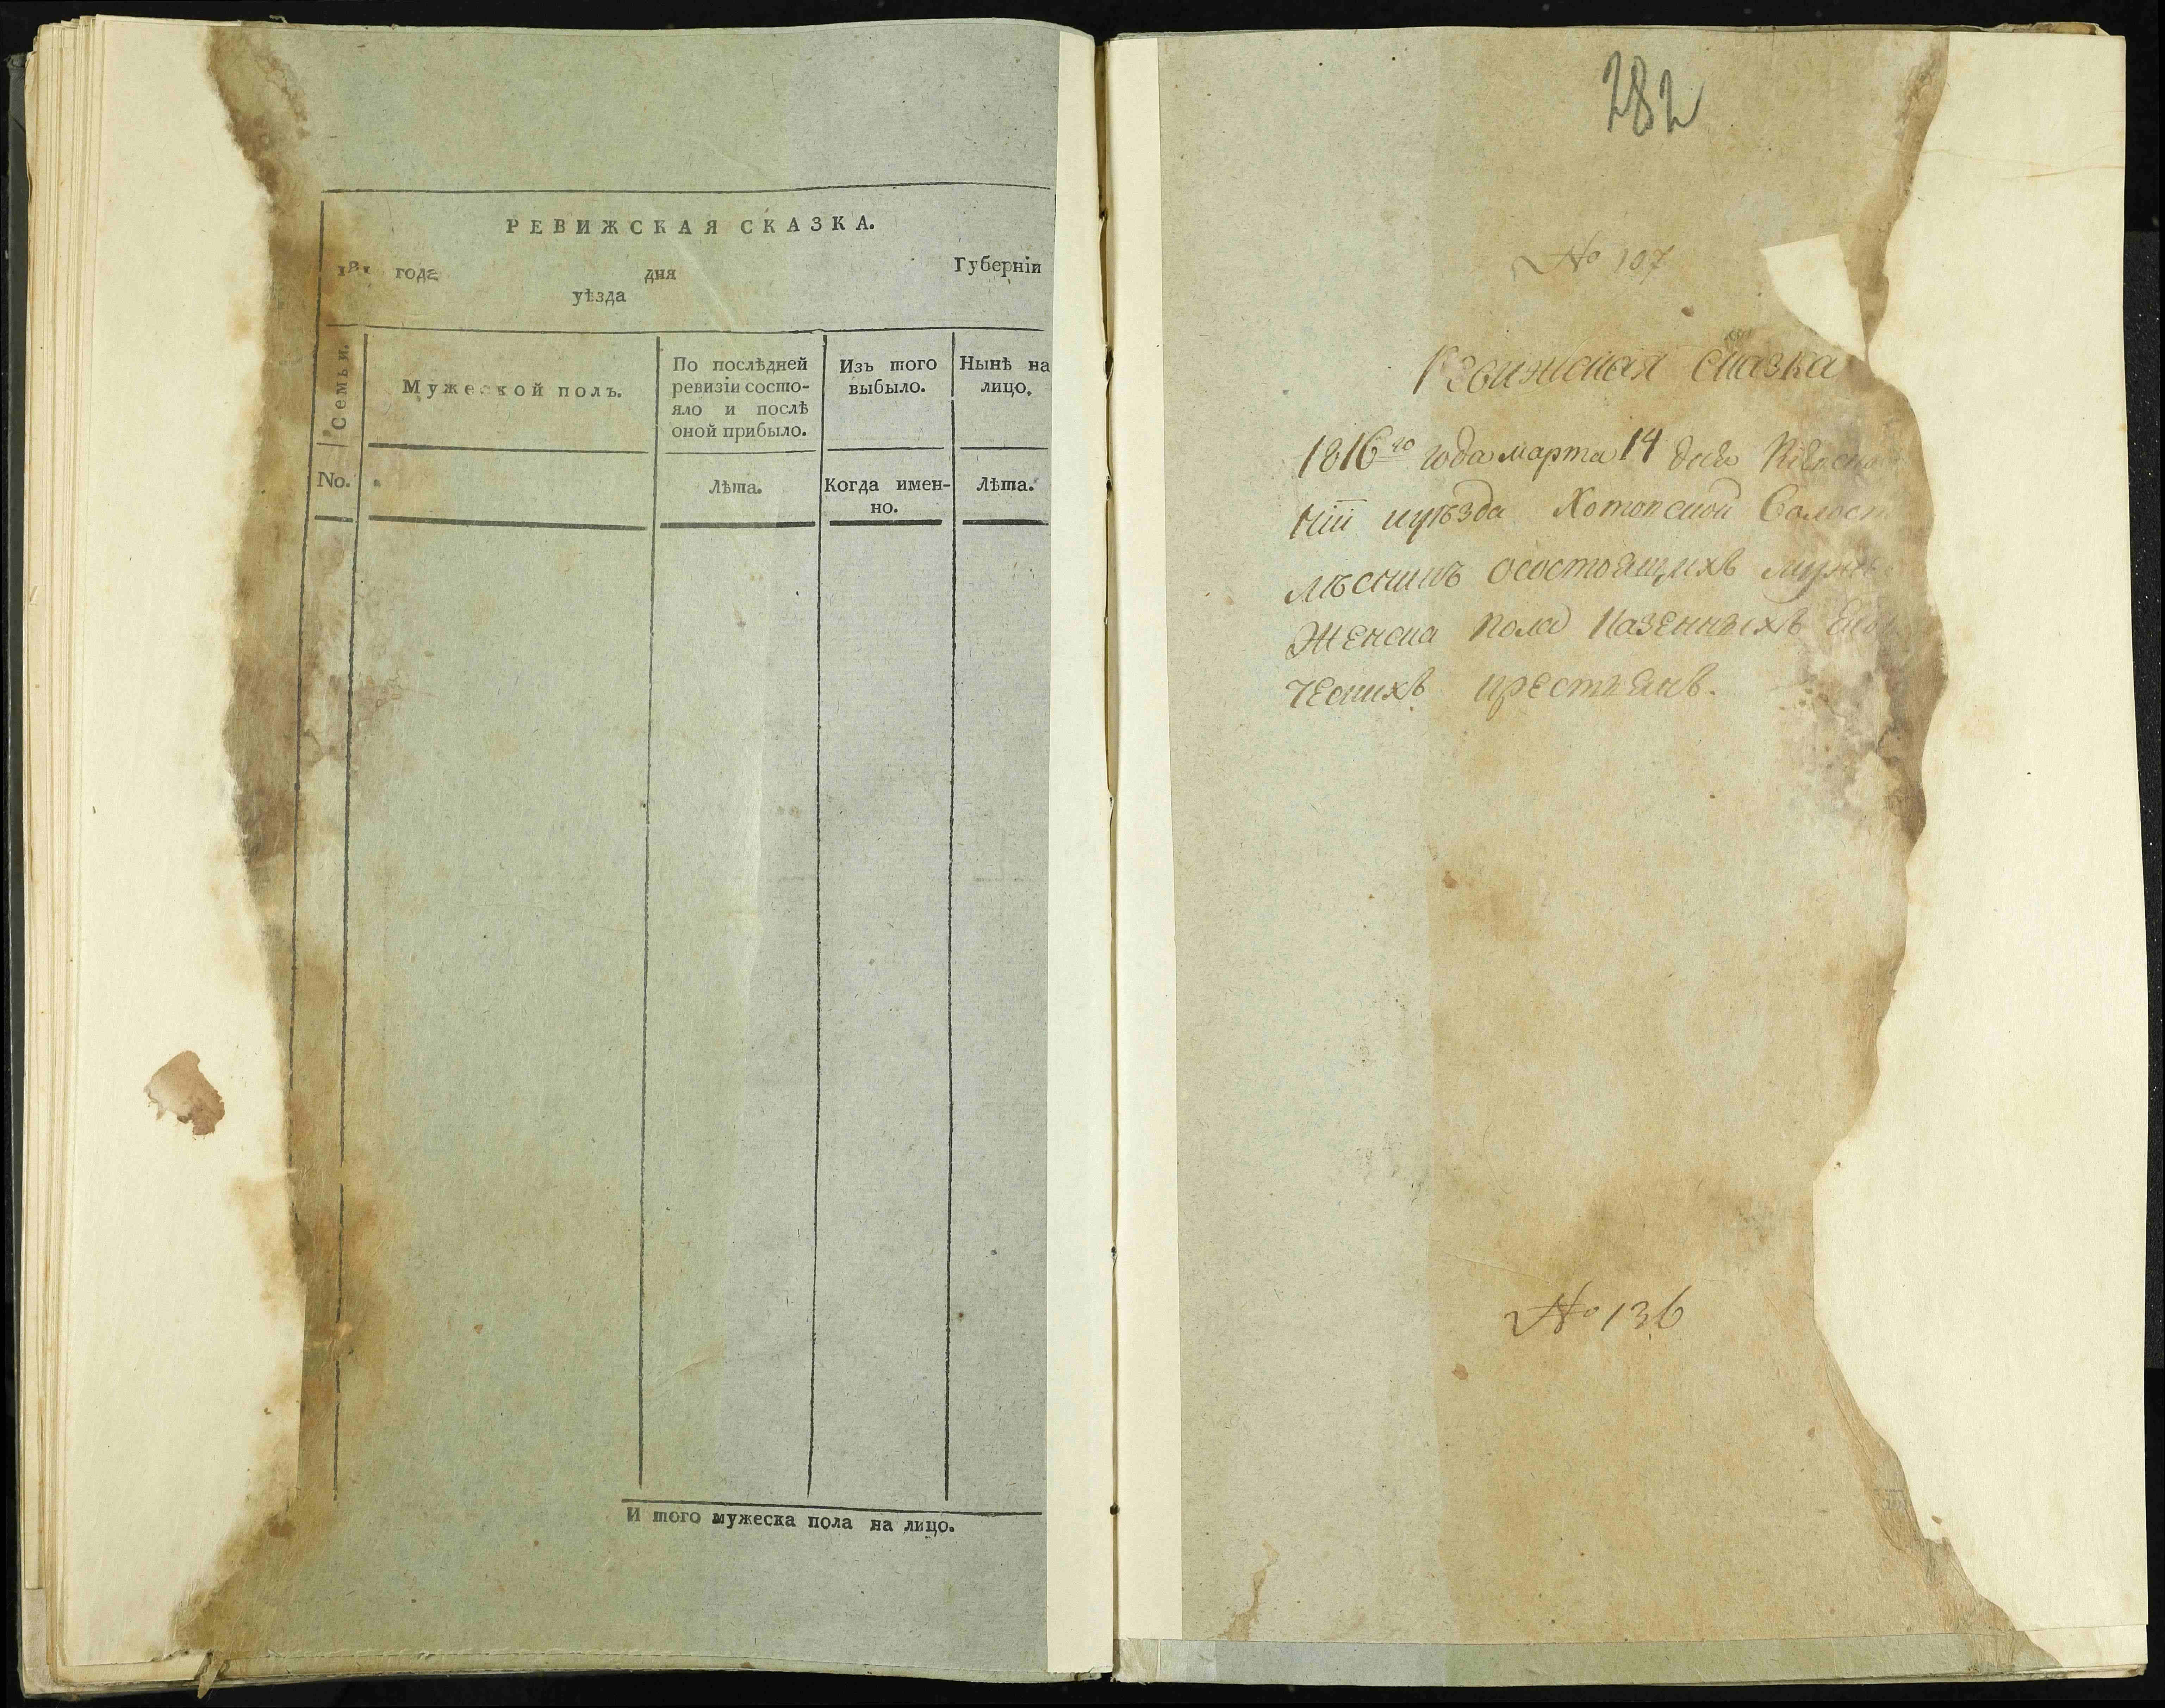 РЕВИЖСКАЯ СКАЗКА.
181 года дня Губерніи
уѣзда
Семьи.
Мужеской полъ.
По послѣдней
ревизіи состо-
яло и послѣ
оной прибыло.
Изъ того
выбыло.
Нынѣ на
лицо.
No.
Лѣта.
Когда имен-
но.
Лѣта.
И того мужеска пола на лицо.
282
No 107
Ревижская сказка
1816го года марта 14 дня
ніи уѣзда Хотопской
осостоящихъ
Женска пола Казенныхъ
ческихъ крестьянъ.
No 136